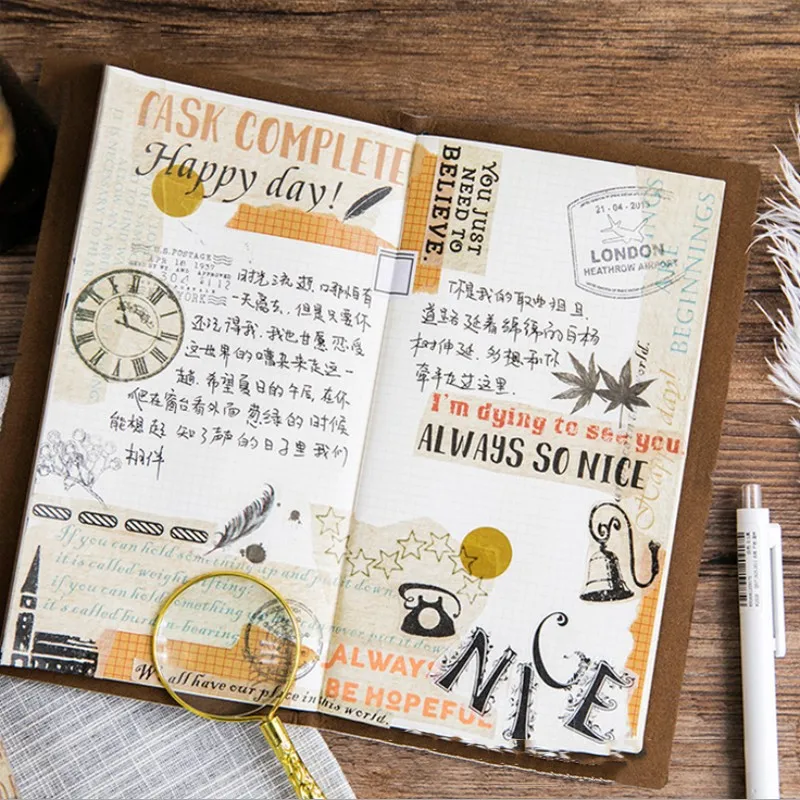 TASK COMPLETE
Happy day!
U.S. POSTAGE
APR 10 1937
YORK
时光流逝，哪怕有
一天离去，但是只要你
还记得我，我也甘愿忍受
这世界的嘈杂来走这一
趟，希望夏日的午后，在你
爬在窗台看外面葱绿的时候
能想起，知了声的日子里我们
相伴
If you can hold something up and put it down,
it is called weight-lifting;
if you can hold something up but never put it down
it's called burden-bearing
We all have our place in this world.
YOU JUST
NEED TO
BELIEVE.
21-04-201
LONDON
HEATHROW AIRPORT
BEGINNINGS
你是我的歌曲，且
道路延着绵绵的白杨
树伸延，多想和你
牵手走过这里.
I'm dying to see you
ALWAYS SO NICE
Happy day!
ALWAYS
BE HOPEFUL
NICE